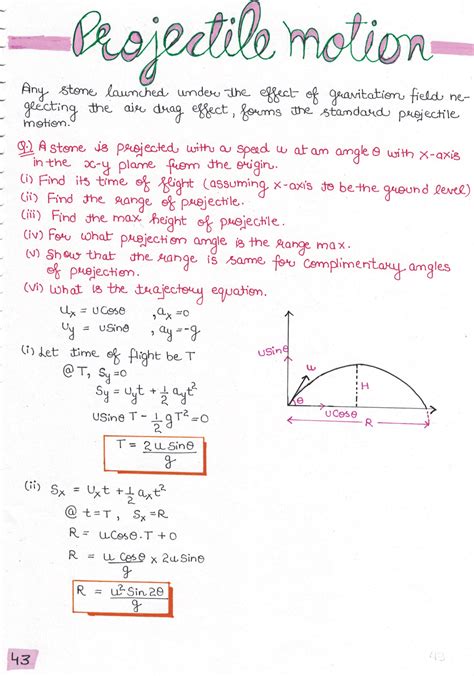 Projectile motion
Any stone launched under the effect of gravitation field ne-
glecting the air drag effect, forms the standard projectile
motion.
Q.) A stone is projected with a speed u at an angle θ with x-axis
in the x-y plane from the origin.
(i) Find its time of flight (assuming x-axis to be the ground level)
(ii) Find the range of projectile.
(iii) Find the max height of projectile.
(iv) For what projection angle is the range max.
(v) Show that the range is same for complimentary angles
of projection.
(vi) What is the trajectory equation.
uₓ = ucosθ , aₓ = 0
u_y = usinθ , a_y = -g
(i) Let time of flight be T
@ T, S_y = 0
S_y = u_y t + 1/2 a_y t²
usinθ T - 1/2 g T² = 0
T = 2usinθ/g
usinθ
u
θ
H
ucosθ
R
(ii) Sₓ = uₓt + 1/2 aₓt²
@ t = T , Sₓ = R
R = ucosθ.T + 0
R = u cosθ/g × 2usinθ
R = u² sin 2θ/g
43
43